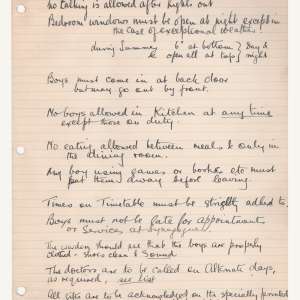 No talking is allowed after lights out
Bedroom windows must be open at night except in
the case of exceptional weather
during Summer 6" at bottom } Day &
& open all at top } night
Boys must come in at back door
but may go out by front.
No boys allowed in Kitchen at any time
except those on duty.
No eating allowed between meals & only in
the dining room.
Any boy using games or books etc must
put them away before leaving
Times on Timetable must be strictly adhered to
Boys must not be late for appointments
or Services at Synagogue
The warden should see that the boys are properly
clothed - shoes clean & sound
The doctors are to be called on alternate days,
as required, see list
All gifts are to be acknowledged on the specially printed